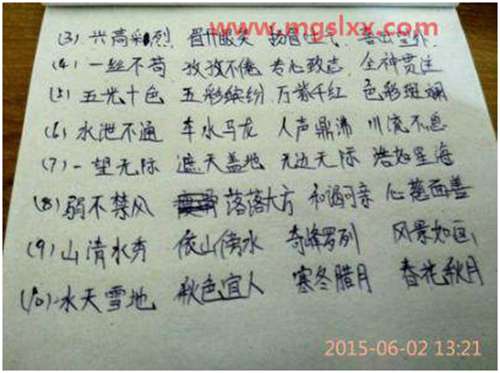 www.mgslxx.com
(3) 兴高采烈
(4) 一丝不苟 孜孜不倦 专心致志 全神贯注
(5) 五光十色 五彩缤纷 万紫千红 色彩斑斓
(6) 水泄不通 车水马龙 人声鼎沸 川流不息
(7) 一望无际 遮天盖地 无边无际 浩如星海
(8) 弱不禁风 落落大方 和谒可亲 心慈面善
(9) 山清水秀 依山傍水 奇峰罗列 风景如画
(10) 冰天雪地 秋色宜人 寒冬腊月 春花秋月
2015-06-02 13:21